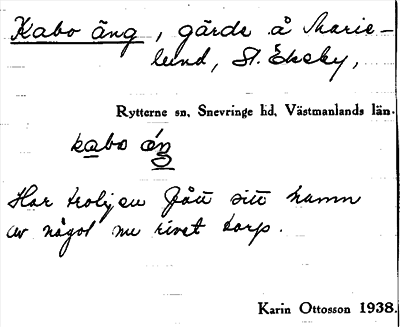 Kabo äng, gärde å Marie-
lund, St. Ekeby,
Rytterne sn, Snevringe hd, Västmanlands län.
kabo éŋ
Har troligen fått sitt namn
av något nu rivet torp.
Karin Ottosson 1938.